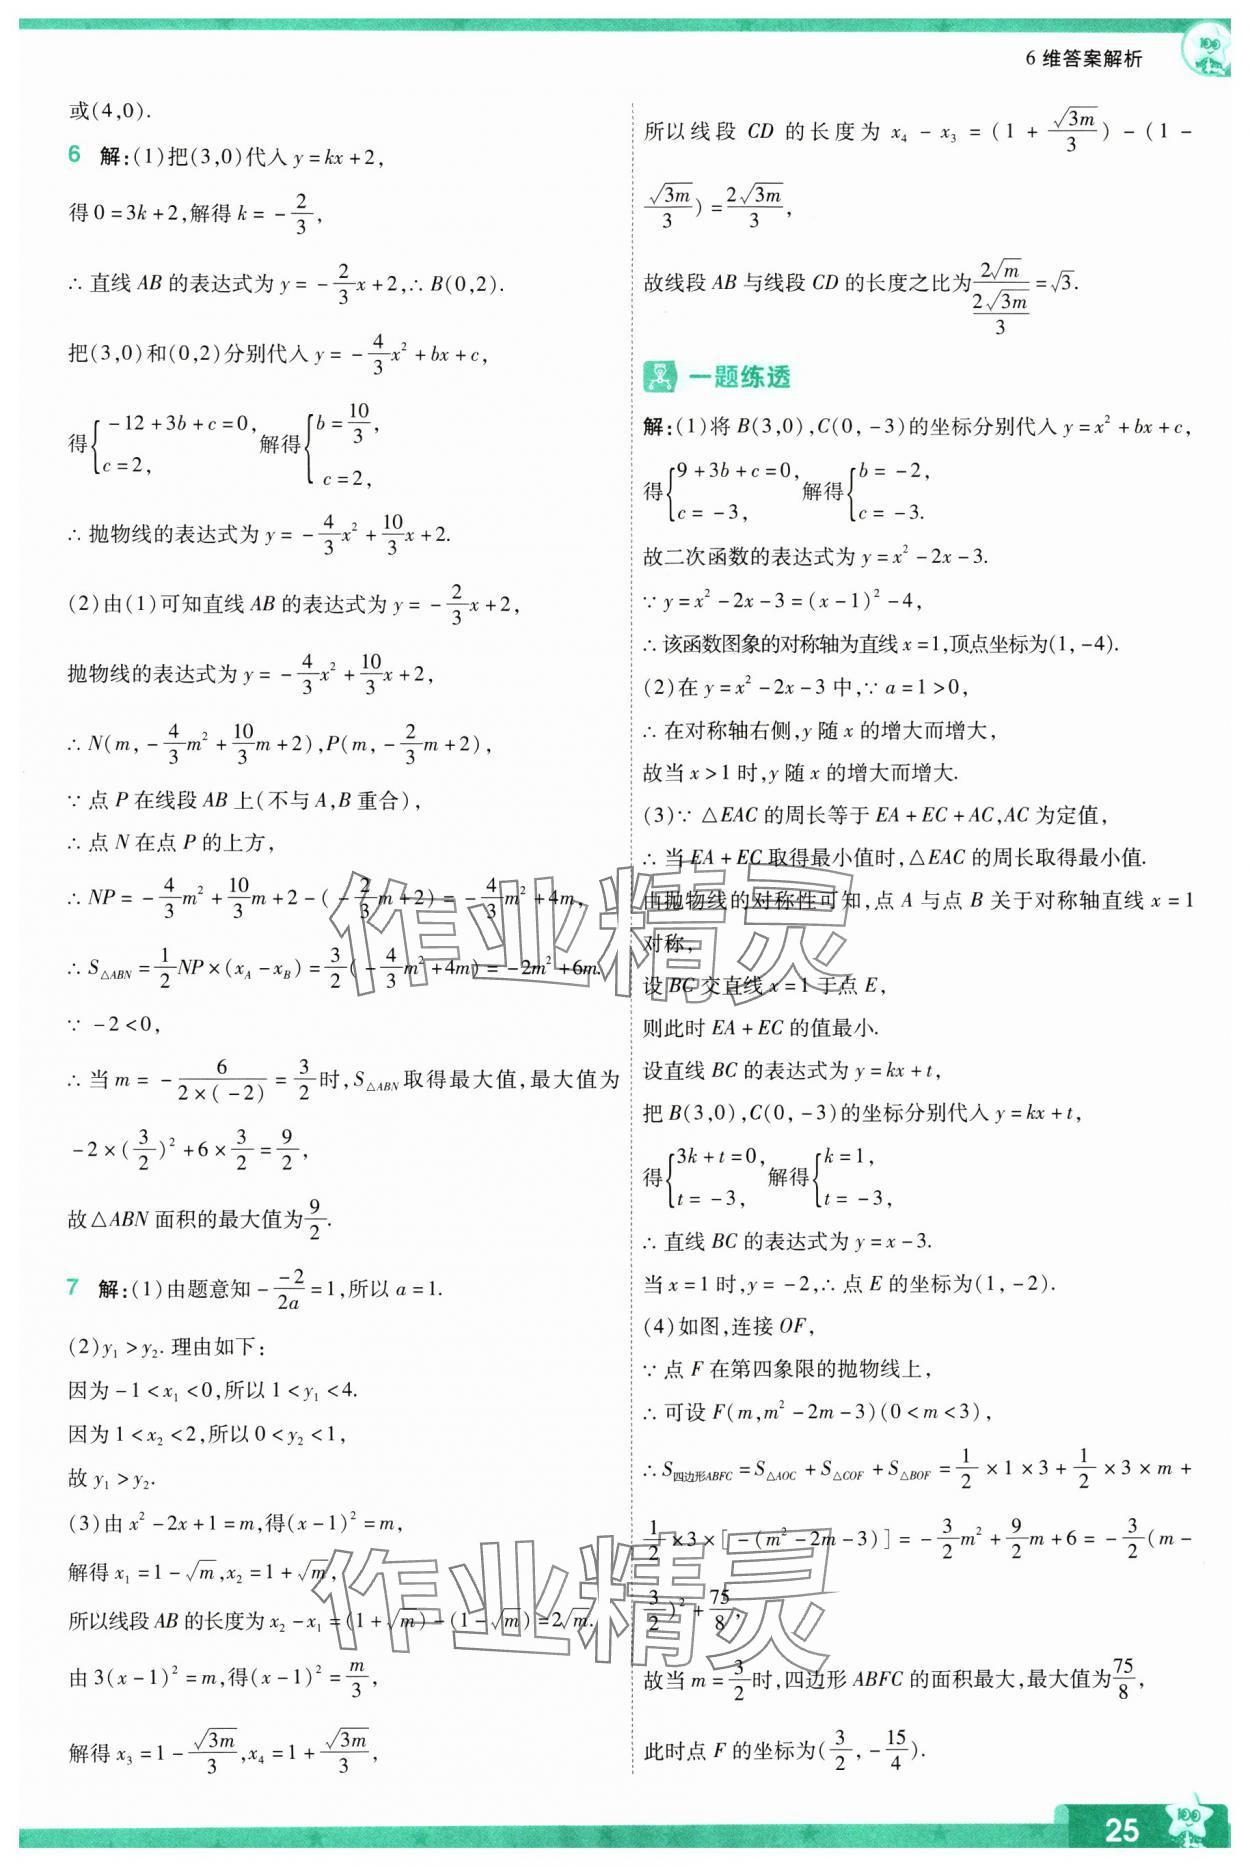 6 维答案解析
或(4,0).
6 解:(1)把(3,0)代入 y=kx+2,
得0=3k+2,解得 k=-2/3,
∴直线 AB 的表达式为 y=-2/3x+2,∴B(0,2).
把(3,0)和(0,2)分别代入 y=-4/3x²+bx+c,
得{-12+3b+c=0, c=2, 解得{b=10/3, c=2,
∴抛物线的表达式为 y=-4/3x²+10/3x+2.
(2)由(1)可知直线 AB 的表达式为 y=-2/3x+2,
抛物线的表达式为 y=-4/3x²+10/3x+2,
∴N(m,-4/3m²+10/3m+2),P(m,-2/3m+2),
∵点 P 在线段 AB 上(不与 A,B 重合),
∴点 N 在点 P 的上方,
∴NP=-4/3m²+10/3m+2-(-2/3m+2)=-4/3m²+4m,
∴S△ABN=1/2NP×(x_A-x_B)=3/2(-4/3m²+4m)=-2m²+6m.
∵-2<0,
∴当 m=-6/(2×(-2))=3/2时,S△ABN取得最大值,最大值为
-2×(3/2)²+6×3/2=9/2,
故△ABN 面积的最大值为9/2.
7 解:(1)由题意知-(-2)/(2a)=1,所以 a=1.
(2)y₁>y₂.理由如下:
因为-1<x₁<0,所以1<y₁<4.
因为1<x₂<2,所以0<y₂<1,
故 y₁>y₂.
(3)由 x²-2x+1=m,得(x-1)²=m,
解得 x₁=1-√m,x₂=1+√m,
所以线段 AB 的长度为 x₂-x₁=(1+√m)-(1-√m)=2√m.
由3(x-1)²=m,得(x-1)²=m/3,
解得 x₃=1-√(3m)/3,x₄=1+√(3m)/3,
所以线段 CD 的长度为 x₄-x₃=(1+√(3m)/3)-(1-
√(3m)/3)=2√(3m)/3,
故线段 AB 与线段 CD 的长度之比为2√m/(2√(3m)/3)=√3.
一题练透
解:(1)将 B(3,0),C(0,-3)的坐标分别代入 y=x²+bx+c,
得{9+3b+c=0, c=-3, 解得{b=-2, c=-3.
故二次函数的表达式为 y=x²-2x-3.
∵y=x²-2x-3=(x-1)²-4,
∴该函数图象的对称轴为直线 x=1,顶点坐标为(1,-4).
(2)在 y=x²-2x-3中,∵a=1>0,
∴在对称轴右侧,y 随 x 的增大而增大,
故当 x>1时,y 随 x 的增大而增大.
(3)∵△EAC 的周长等于 EA+EC+AC,AC 为定值,
∴当 EA+EC 取得最小值时,△EAC 的周长取得最小值.
由抛物线的对称性可知,点 A 与点 B 关于对称轴直线 x=1
对称,
设 BC 交直线 x=1于点 E,
则此时 EA+EC 的值最小.
设直线 BC 的表达式为 y=kx+t,
把 B(3,0),C(0,-3)的坐标分别代入 y=kx+t,
得{3k+t=0, t=-3, 解得{k=1, t=-3,
∴直线 BC 的表达式为 y=x-3.
当 x=1时,y=-2,∴点 E 的坐标为(1,-2).
(4)如图,连接 OF,
∵点 F 在第四象限的抛物线上,
∴可设 F(m,m²-2m-3)(0<m<3),
∴S四边形ABFC=S△AOC+S△COF+S△BOF=1/2×1×3+1/2×3×m+
1/2×3×[-(m²-2m-3)]=-3/2m²+9/2m+6=-3/2(m-
3/2)²+75/8,
故当 m=3/2时,四边形 ABFC 的面积最大,最大值为75/8,
此时点 F 的坐标为(3/2,-15/4).
作业精灵
作业精灵
25